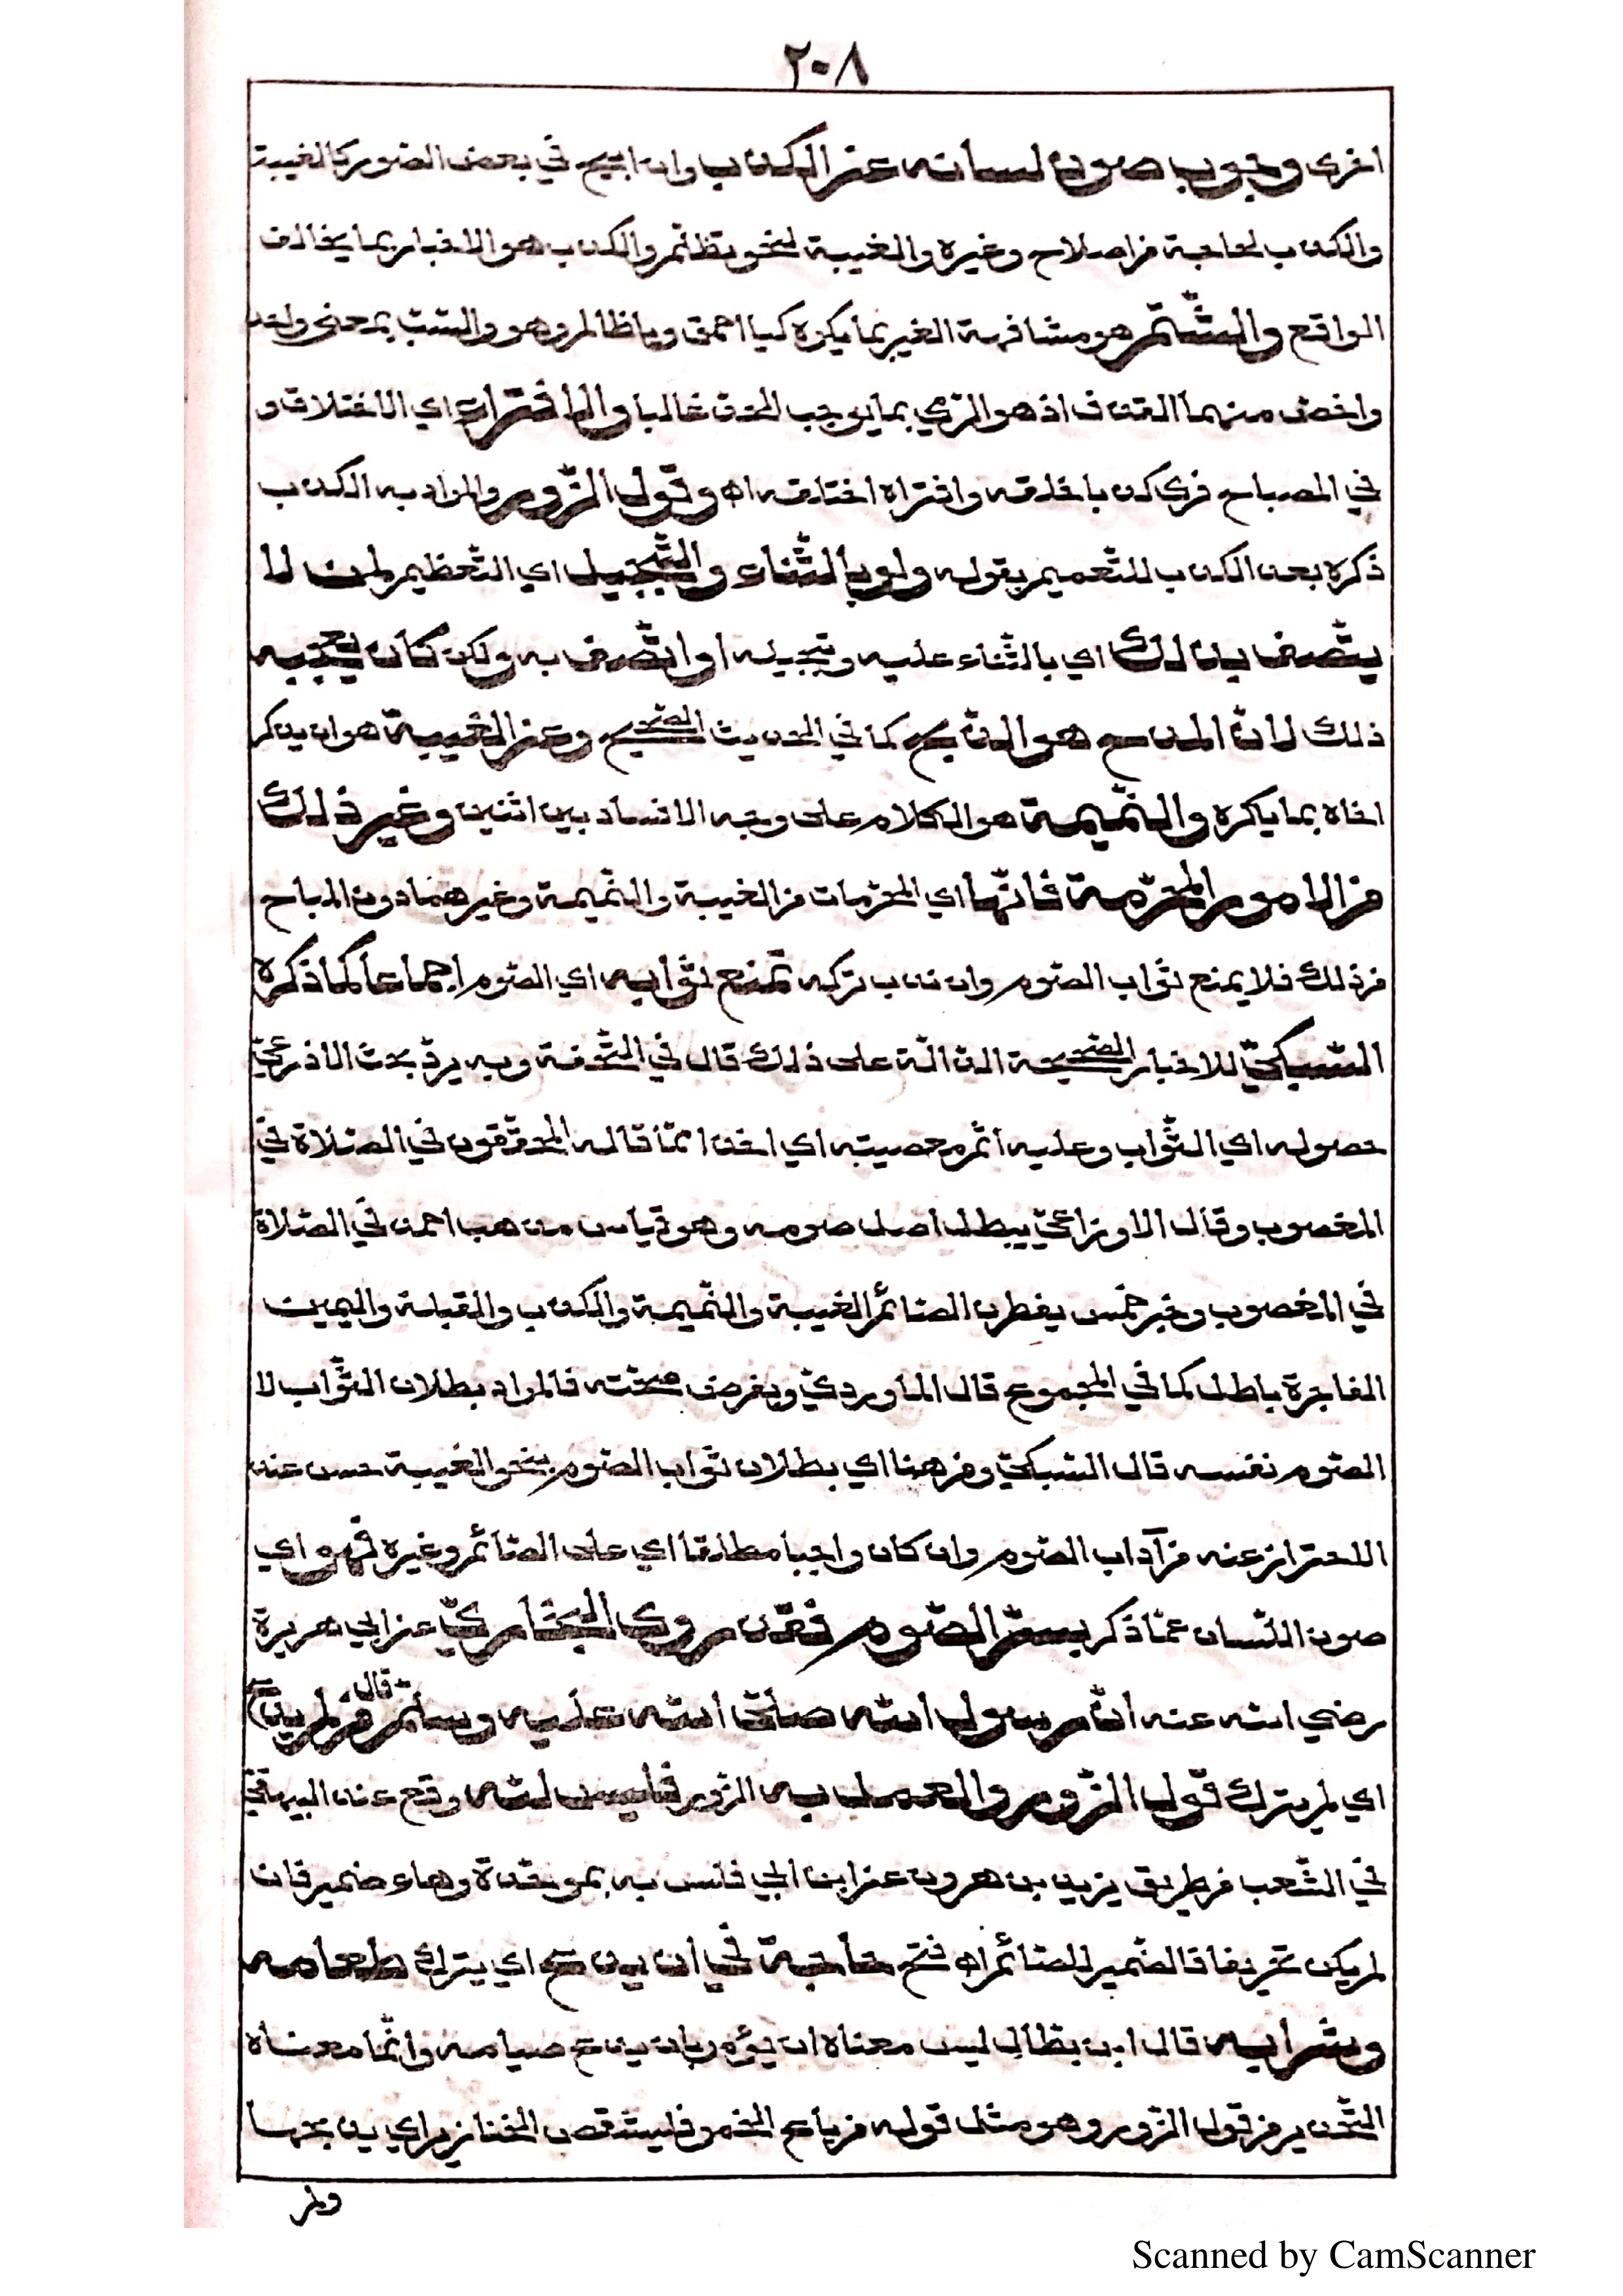 ٢٠٨
اخرى وجوب صون لسانه عن الكذب وان ابيح في بعض الصور كالغيبة
والكذب لحاجة من اصلاح وغيره والغيبة لنحو تظلم والكذب هو الاخبار بما يخالف
الواقع والشّتم هو مشافهة الغير بما يكره كيا احمق ويا ظالم وهو والسّبّ بمعنى واحد
واخصّ منهما القذف اذ هو الرّمي بما يوجب الحدّ غالبا والافتراء اي الاختلاق و
في المصباح فرى كذبا خلقه وافتراه اختلقه اه وقول الزّور والمراد به الكذب
ذكره بعد الكذب للتّعميم بقوله ولو بالثّناء والتّبجيل اي التّعظيم لمن لا
يتّصف بذلك اي بالثّناء عليه وتبجيله او اتّصف به ولكن كان يعجبه
ذلك لانّ المدح هو الذّبح كما في الحديث الصّحيح وعن الغيبة هو ان يذكر
اخاه بما يكره والنّميمة هو الكلام على وجه الافساد بين اثنين وغير ذلك
من الامور المحرّمة فانّها اي المحرّمات من الغيبة والنّميمة وغيرهما دون المباح
من ذلك فلا يمنع ثواب الصّوم وان ندب تركه تمنع ثوابه اي الصّوم اجماعا كما ذكره
السّبكيّ للاخبار الصّحيحة الدّالّة على ذلك قال في التّحفة وبه يردّ بحث الاذرعيّ
حصوله اي الثّواب وعليه اثم معصيته اي اخذا ممّا قاله المحقّقون في الصّلاة في
المغصوب وقال الاوزاعيّ يبطل اصل صومه وهو قياس مذهب احمد في الصّلاة
في المغصوب وخبر خمس يفطرن الصّائم الغيبة والنّميمة والكذب والقبلة واليمين
الفاجرة باطل كما في المجموع قال الماورديّ وبفرض صحّته فالمراد بطلان الثّواب لا
الصّوم نفسه قال السّبكيّ ومن هنا اي بطلان ثواب الصّوم بنحو الغيبة حسن عدّ
الاحتراز عنه من آداب الصّوم وان كان واجبا مطلقا اي على الصّائم وغيره فهو اي
صون اللّسان عمّا ذكر بسرّ الصّوم فقد روى البخاريّ عن ابي هريرة
رضي الله عنه انّ رسول الله صلّى الله عليه وسلّم قال من لم يدع
اي لم يترك قول الزّور والعمل به الزّور فليس لله وقع عند البيهقيّ
في الشّعب من طريق يزيد بن هرون عن ابن ابي ذئب به بموحّدة وهاء ضمير فان
لم يكن تحريفا فالضّمير للصّائم اه فتح حاجة في ان يدع اي يترك طعامه
وشرابه قال ابن بطّال ليس معناه ان يؤمر بان يدع صيامه وانّما معناه
التّحذير من قول الزّور وهو مثل قوله من باع الخمر فليشقص الخنازير اي يذبحها
ولم
Scanned by CamScanner